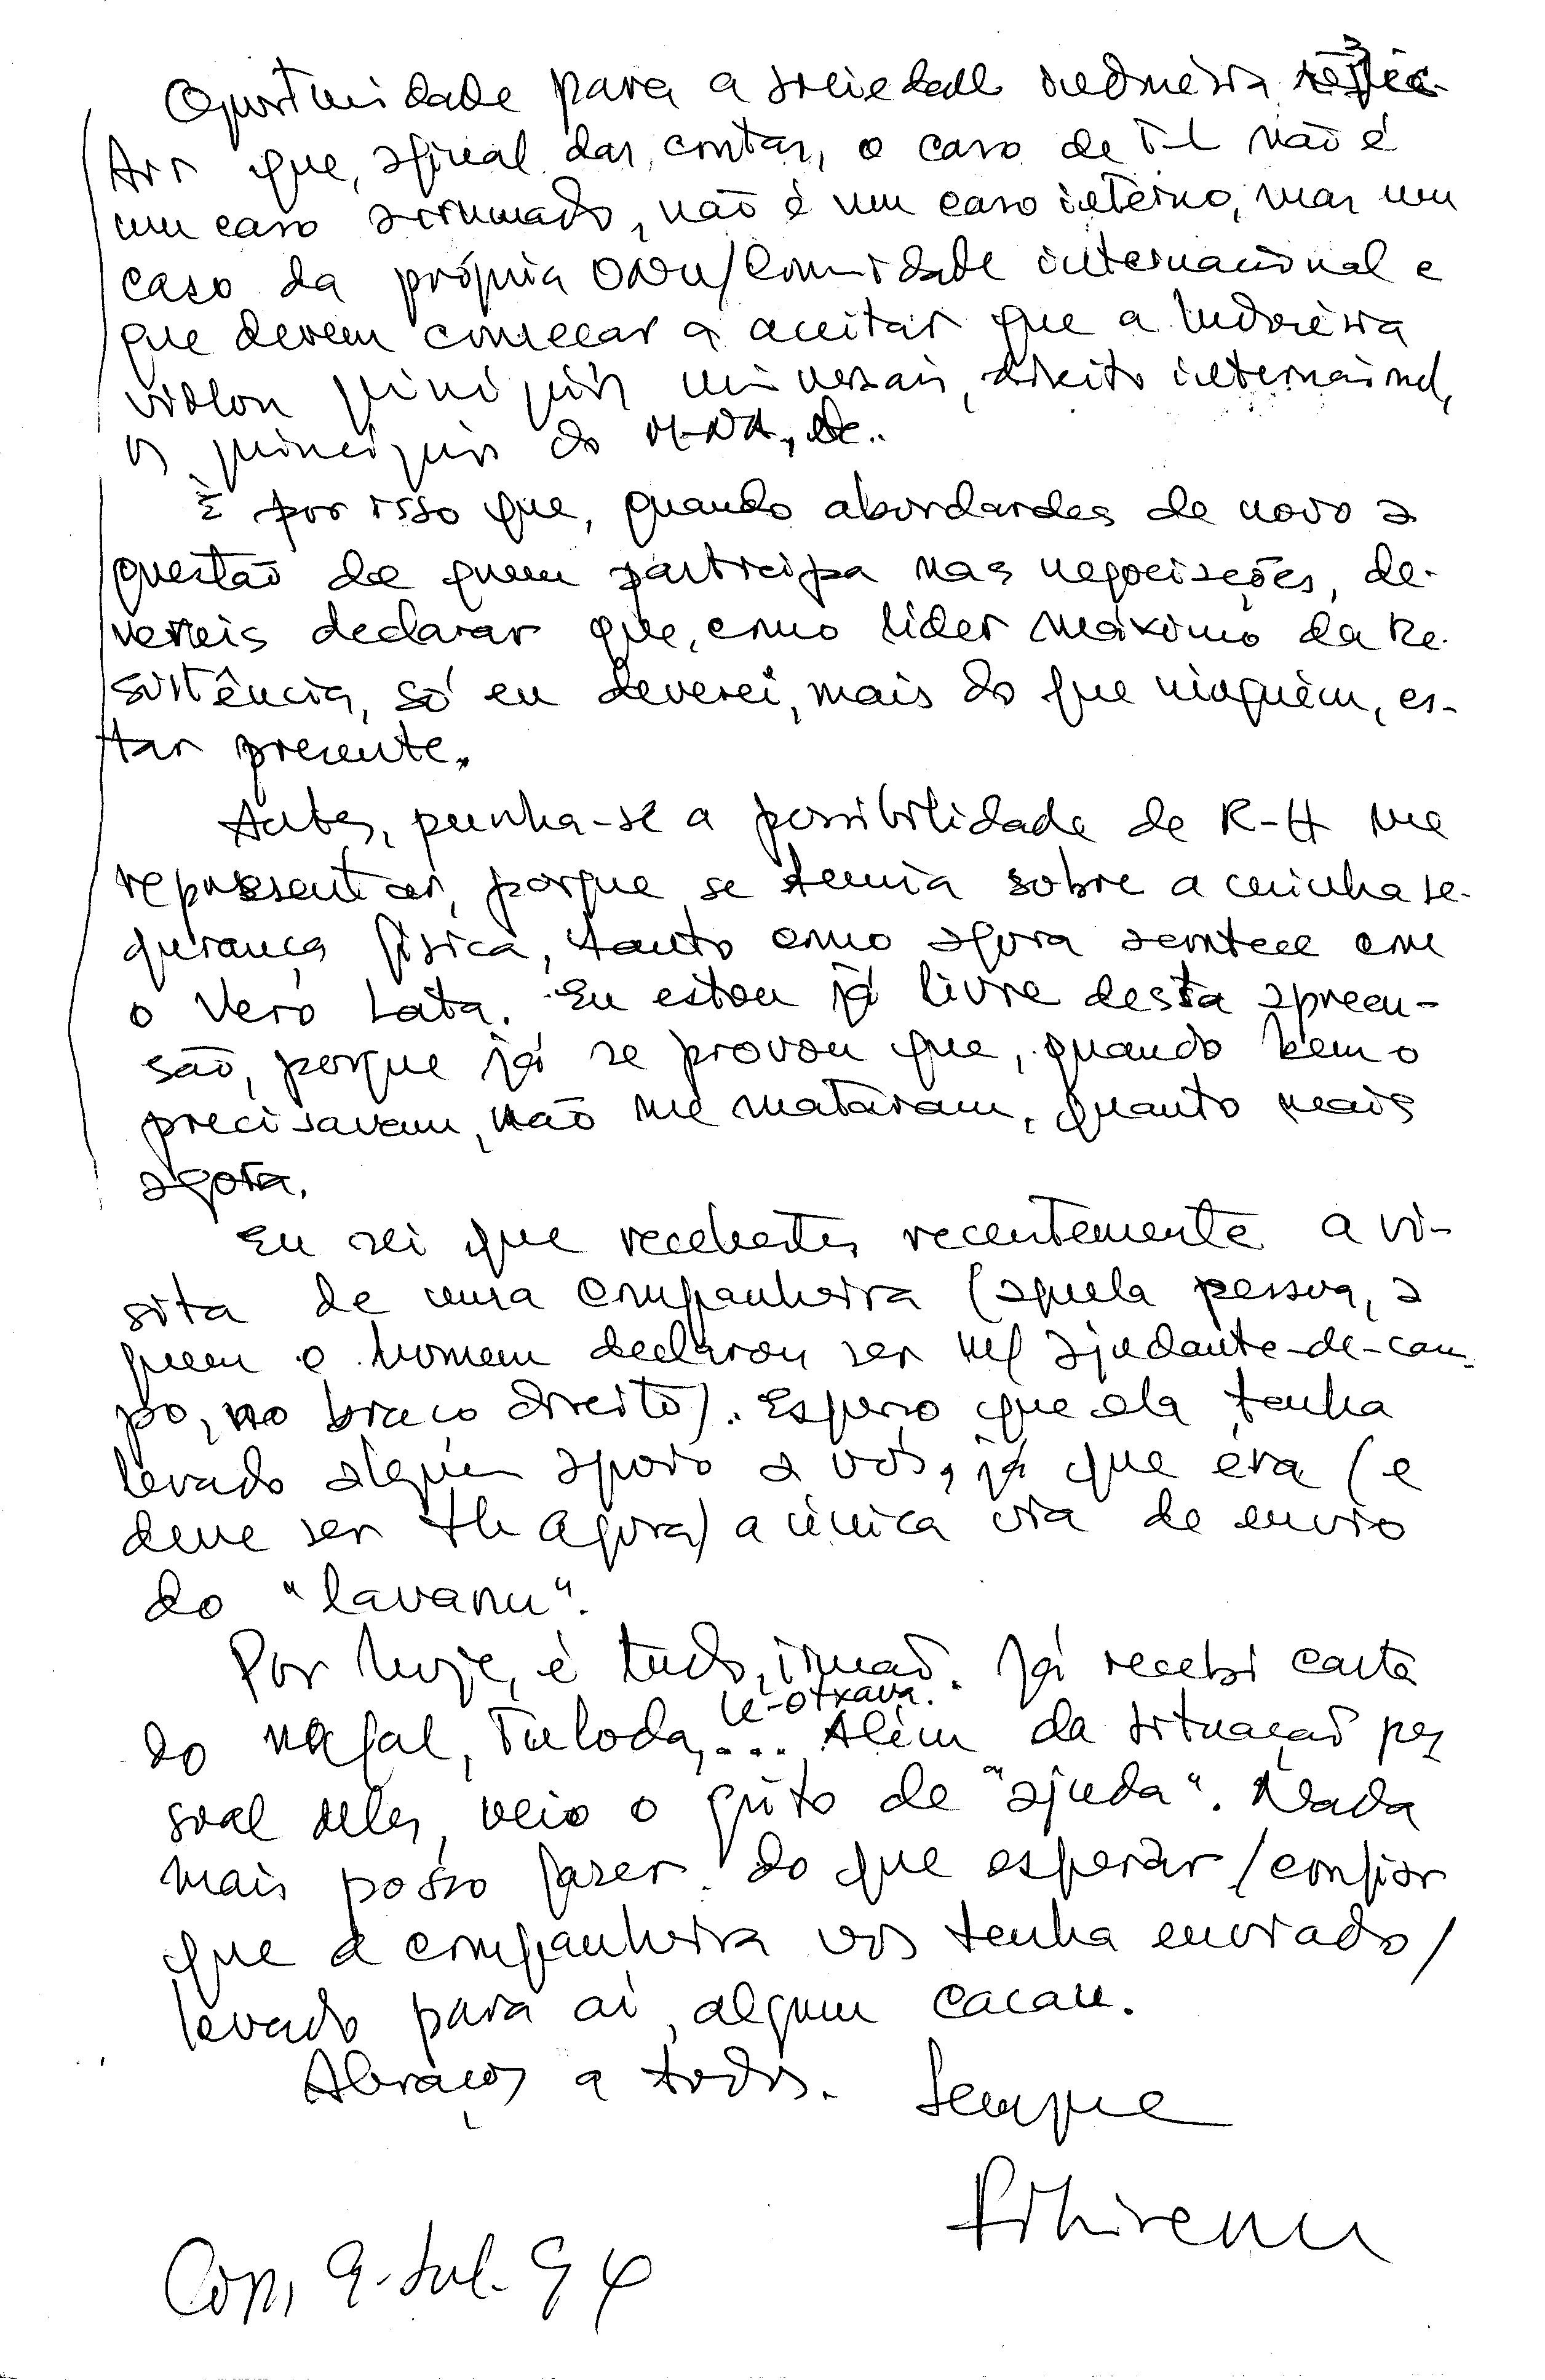 3
Oportunidade para a sociedade indonésia
que, afinal das contas, o caso de T-L não é
um caso arrumado, não é um caso interno, mas um
caso da própria ONU/Comunidade internacional e
que devem começar a aceitar que a Indonésia
violou princípios universais, direito internacional,
os princípios do M-NA, etc..
É por isso que, quando abordardes de novo a
questão de quem participa nas negociações, de-
vereis declarar que, como líder máximo da Re-
sistência, só eu deverei, mais do que ninguém, es-
tar presente.
Antes, punha-se a possibilidade de R-H me
representar, porque se temia sobre a minha se-
gurança física, tanto como agora acontece com
o Vero Lata. Eu estou já livre desta apreen-
são, porque já se provou que, quando bem o
precisavam, não me mataram, quanto mais
agora.
Eu sei que recebestes recentemente a vi-
sita de uma companheira (aquela pessoa, a
quem o homem declarou ser m/ ajudante-de-cam-
po, no braço direito). Espero que ela tenha
levado algum apoio a vós, já que era (e
deve ser tb agora) a única via de envio
do "lavanu".
Por hoje, é tudo, irmão. Já recebi carta
Le-otxava.
do Nafal, Tuloda, ... Além da situação pes
soal deles, veio o grito de "ajuda". Nada
mais posso fazer do que esperar/confiar
que a companheira vos tenha enviado/
levado para aí, algum cacau.
Abraços a todos. Sempre
Cop, 9-Jul-94